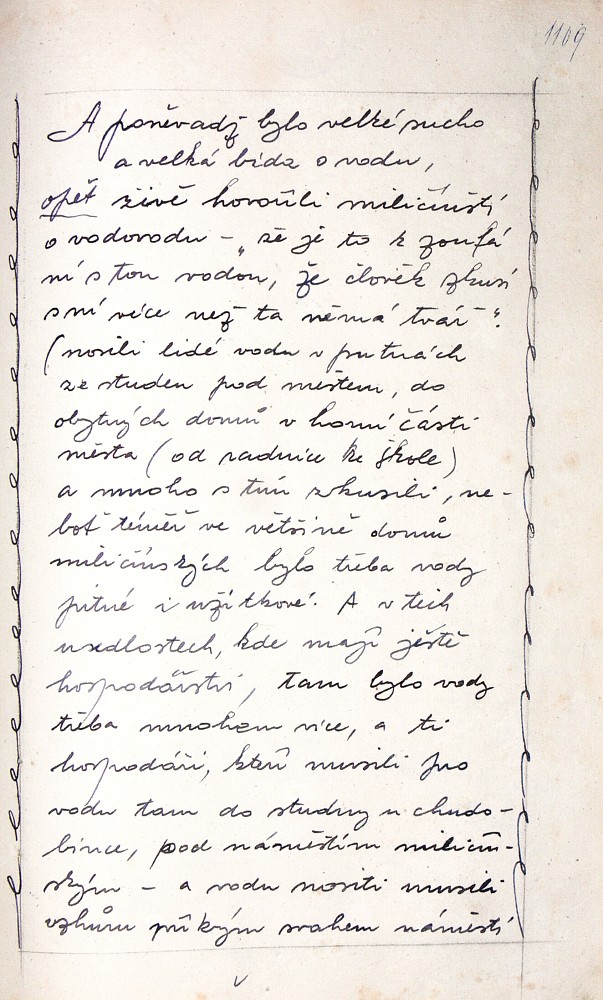 1109
A poněvadž bylo velké sucho
a velká bída o vodu,
opět živě hovořili miličínští
o vodovodu – „že je to k zoufá
ní s tou vodou, že člověk zkusí
s ní více než ta němá tvář“.
(nosili lidé vodu v putnách
ze studen pod městem, do
obytných domů v horní části
města (od radnice ke škole)
a mnoho s tím zkusili, ne-
boť téměř ve většině domů
miličínských bylo třeba vody
pitné i užitkové. A v těch
usedlostech, kde mají ještě
hospodářství, tam bylo vody
třeba mnohem více, a ti
hospodáři, kteří musili pro
vodu tam do studny u chudo-
bince, pod náměstím miličín-
ským – a vodu nositi musili
vzhůru příkrým svahem náměstí